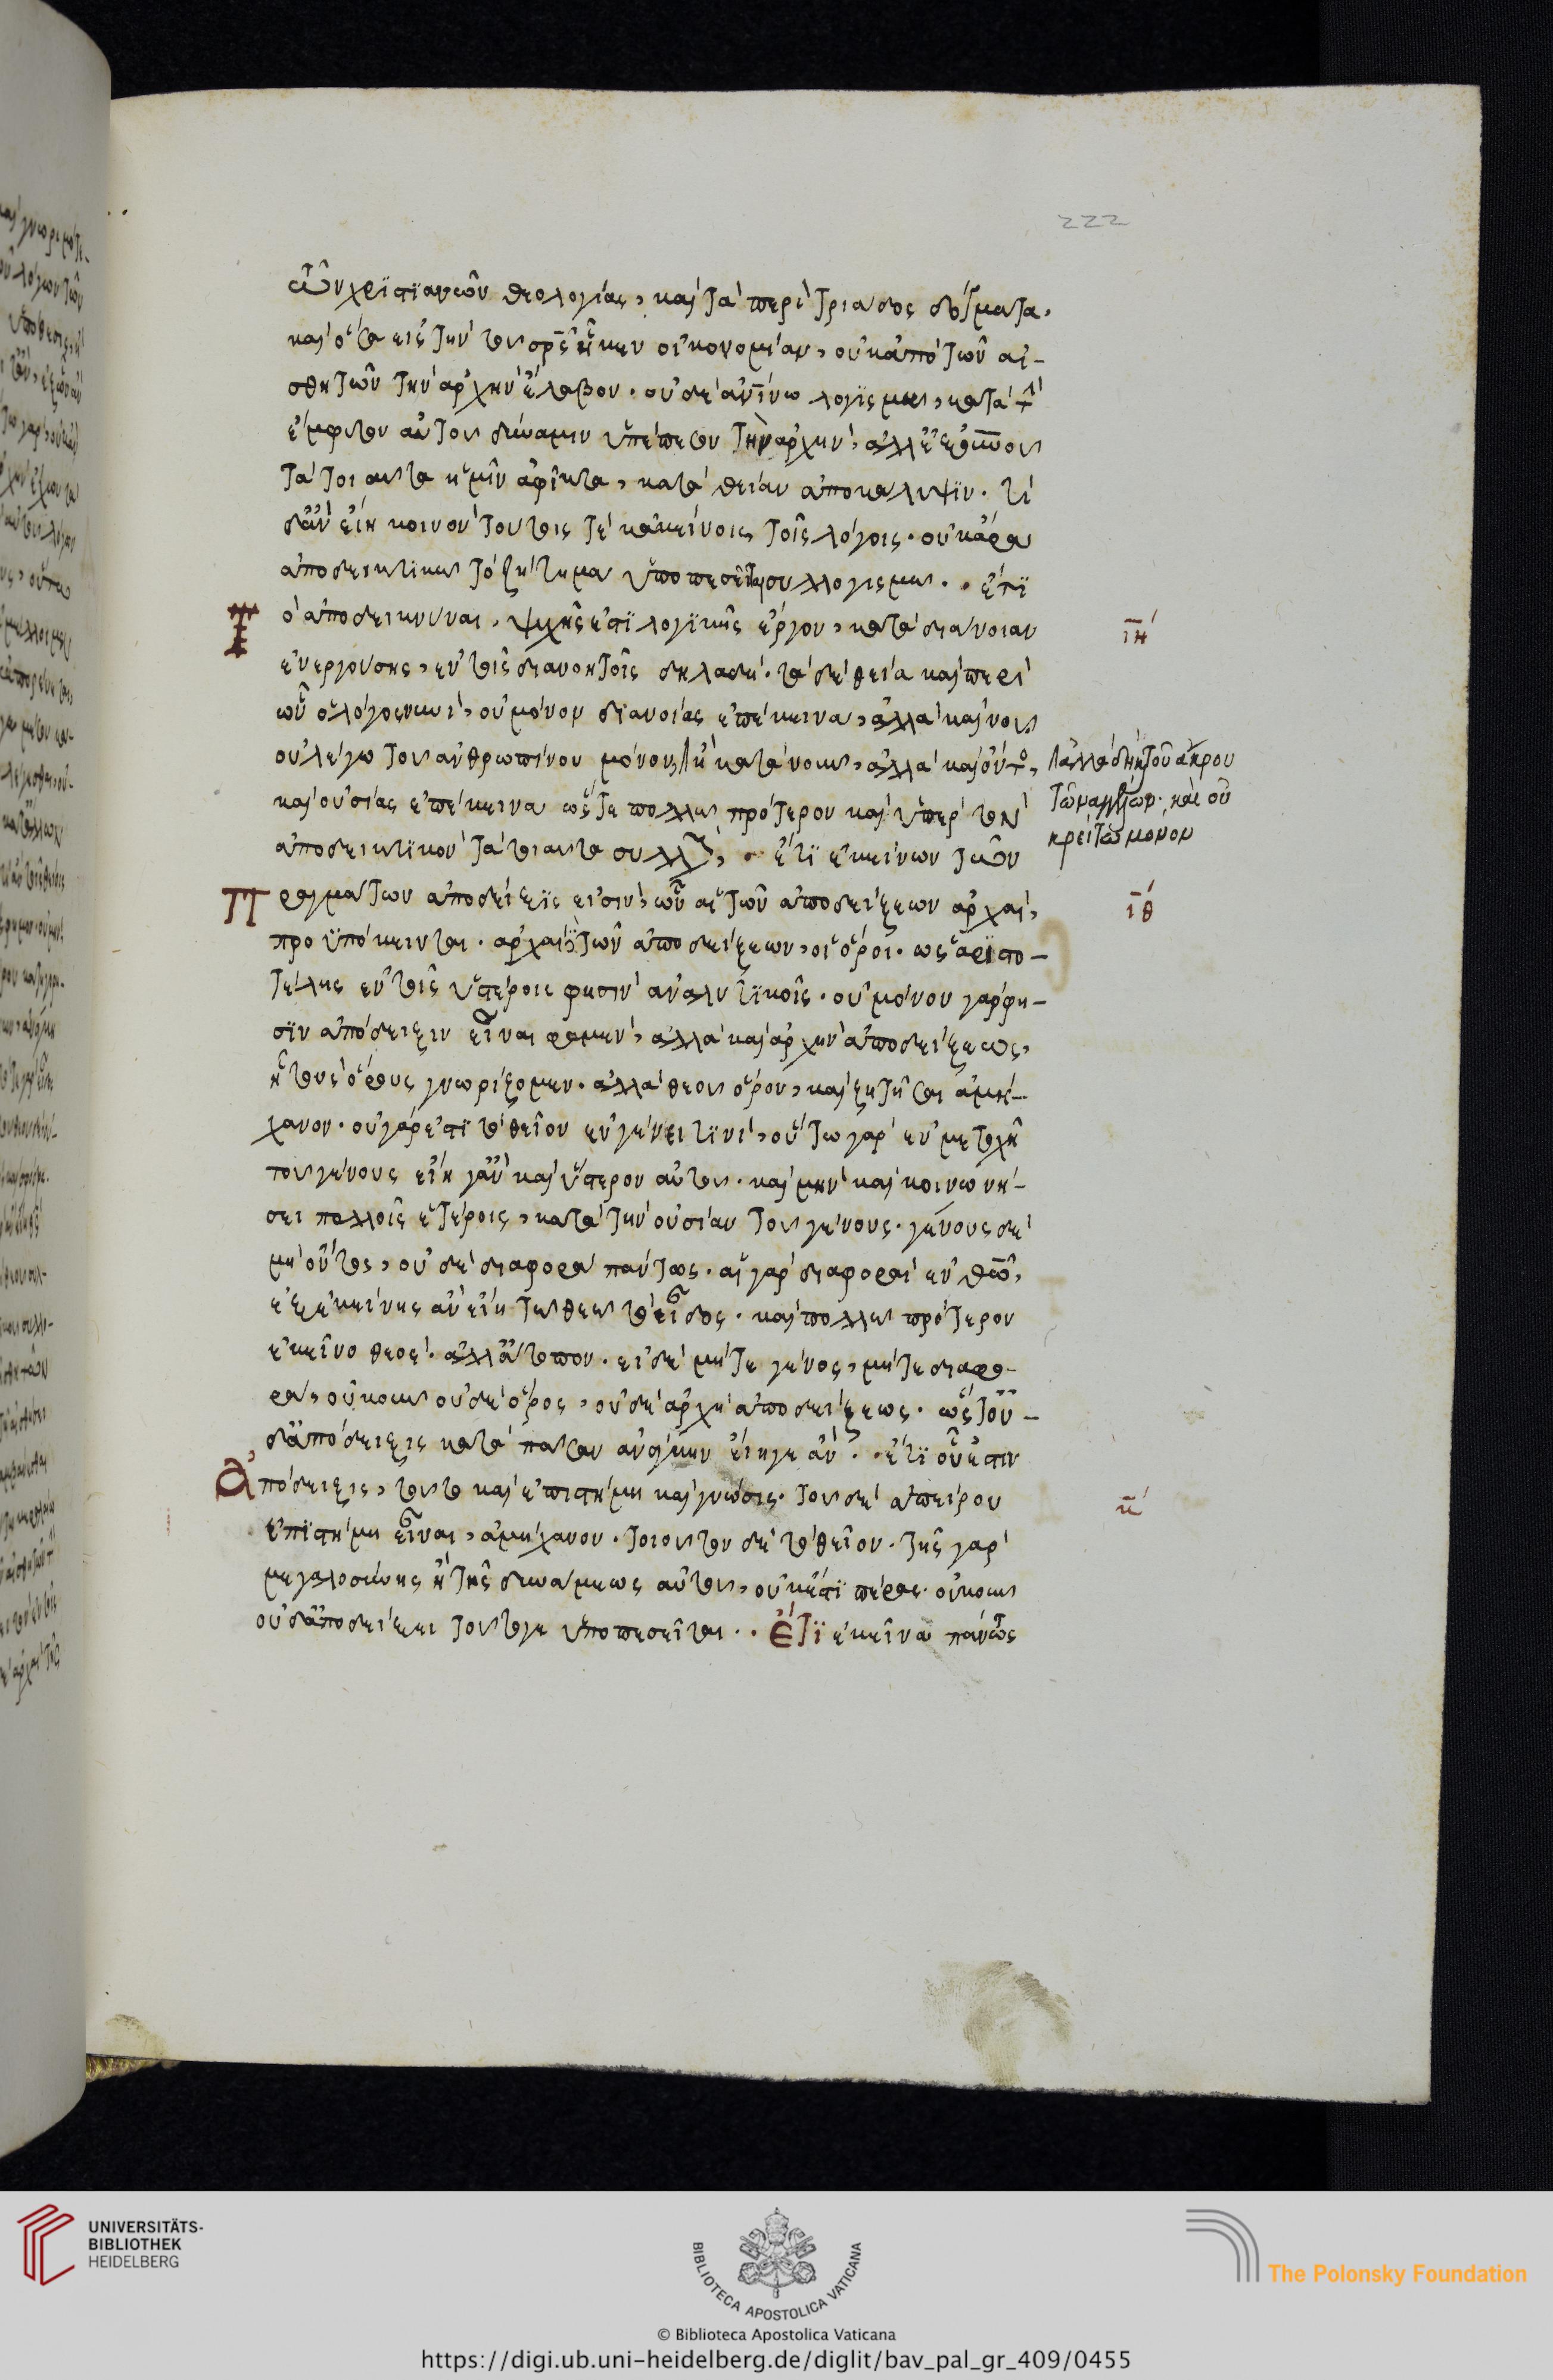 222
τῶν χριστϊανῶν θεολογίας, καὶ τὰ περὶ τριάδος δόγματα,
καὶ ὅσα εἰς τὴν τοῦ σρ̅ς ἥκειν οἰκονομίαν, οὐκ ἀπὸ τῶν αἰ-
σθητῶν τὴν ἀρχὴν ἔλαβον. οὐδὲ λογϊσμοῦ, κατὰ τ(ὴν)
ἔμφυτον αὐτοῦ δύναμιν ὑπέπεσον τὴν ἀρχὴν,
τὰ τοιαῦτα ἡμῖν ἀφῖκται, κατὰ θείαν ἀποκάλυψϊν. τί
δἂν εἴη κοινὸν τούτοις τὲ κἀκείνοις τοῖς λόγοις. οὐκ ἄρα
ἀποδεικτικῶ τὸ ζήτημα ὑποπεσεῖται συλλογισμῶ. ἔτϊ
Τὸ ἀποδεικνύναι, ψυχῆς ἐστϊ λογϊκῆς ἔργον, κατὰ διάνοιαν
ιη
ἐνεργούσης, ἐν τοῖς διανοητοῖς δηλαδή. τὰ δὲ θεῖα καὶ περὶ
ὧν ὁ λόγος νυνὶ, οὐ μόνον διανοίας ἐπέκεινα, ἀλλὰ καὶ νοῦ,
οὐ λέγω τοῦ ἀνθρωπίνου μόνου, ἢ κατὰ νοῦν, ἀλλὰ καὶ ὄντο(ς),
ἀλλὰ δὴ καὶ τοῦ ἄκρου
τῶν ἀγγέλων. καὶ οὐ
κρείττω μόνον
καὶ οὐσίας ἐπέκεινα ὥστε πολλῶ πρότερον καὶ ὑπὲρ τὸν
ἀποδεικτϊκὸν τὰ τοιαῦτα συλλ(ογισμόν). ἔτϊ ἐκείνων τῶν
Πραγμάτων ἀποδείξεϊς εἰσὶν, ὧν αἱ τῶν ἀποδείξεων ἀρχαὶ,
ιθ
προϋπόκεινται. ἀρχαὶ δὲ τῶν ἀποδείξεων, οἱ ὅροι. ὡς ἀρϊστο-
τέλης ἐν τοῖς ὑστέροις φησὶν ἀναλυτϊκοῖς. οὐ μόνον γὰρ φη-
σϊν ἀπόδειξιν εἶναι φαμὲν, ἀλλὰ καὶ ἀρχὴν ἀποδείξεως,
ἧ τοὺς ὅρους γνωρίζομεν. ἀλλὰ θεοῦ ὅρον, καὶ ζητῆσαι ἀμή-
χανον. οὐ γάρ ἐστϊ τὸ θεῖον ἐν γένει τϊνὶ, οὕτω γὰρ ἐν μετοχῆ
του γένους εἴη γἂν καὶ ὕστερον αὐτοῦ. καὶ μὴν καὶ κοινωνή-
σει πολλοῖς ἑτέροις, κατὰ τὴν οὐσίαν τοῦ γένους. γένους δὲ
μὴ ὄντος, οὐδὲ διαφορὰ πάντως. αἱ γὰρ διαφοραὶ ἐν θεῶ,
ἐξ ἐκείνης ἂν εἴη τῆς θεοῦ τὸ εἶδος. καὶ πολλῶ πρότερον
ἐκεῖνο θεός. ἀλλ' ἄτοπον. εἰ δὲ μήτε γένος, μήτε διαφο-
ρὰ, οὔκουν οὐδὲ ὅρος, οὐδὲ ἀρχὴ ἀποδείξεως. ὥστ' οὐ-
δ' ἀπόδειξις κατὰ πᾶσαν ἀνάγκην εἴηγε ἄν. ἔτϊ οὗ ἐστιν
Ἀπόδειξις, τούτου καὶ ἐπιστήμη καὶ γνῶσις. τοῦ δὲ ἀπείρου
κ
ἐπϊστήμη εἶναι, ἀμήχανον. τοιοῦτον δὲ τὸ θεῖον. τῆς γὰρ
μεγαλοσύνης ἢ τῆς δυνάμεως αὐτοῦ, οὐκ ἔστϊ πέρας. οὔκουν
οὐδ' ἀποδείξει τοῦτό γε ὑποπεσεῖται. Ἔτϊ ἐκεῖνα πάντως
UNIVERSITÄTS-
BIBLIOTHEK
HEIDELBERG
BIBLIOTECA APOSTOLICA VATICANA
© Biblioteca Apostolica Vaticana
The Polonsky Foundation
https://digi.ub.uni-heidelberg.de/diglit/bav_pal_gr_409/0455